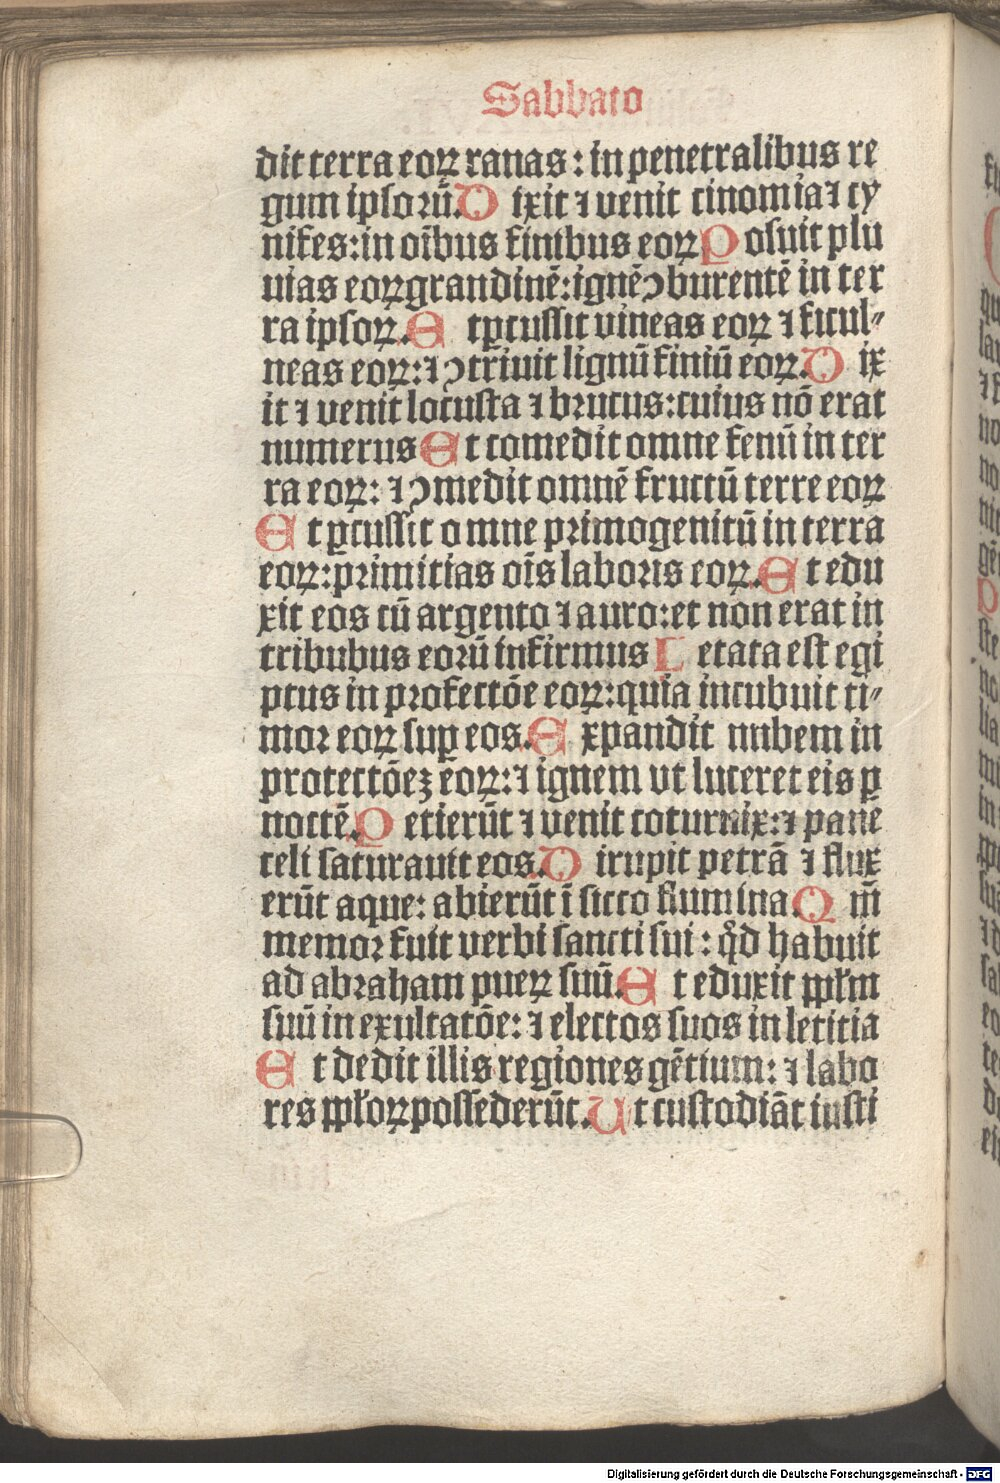 Sabbato
dit terra eoꝝ ranas : in penetralibus re
gum ipsorū. D ixit ⁊ venit cinomia ⁊ cy
nifes: in oībus finibus eoꝝ P osuit plu
uias eoꝝ grandinē: ignē ꝯburentē in ter
ra ipsoꝝ. E t ꝑcussit vineas eoꝝ ⁊ ficul⸗
neas eoꝝ: ⁊ ꝯtriuit lignū finiū eoꝝ. D ix
it ⁊ venit locusta ⁊ brucus: cuius nō erat
numerus E t comedit omne fenū in ter
ra eoꝝ: ⁊ ꝯmedit omnē fructū terre eoꝝ
E t ꝑcussit omne primogenitū in terra
eoꝝ: primitias oīs laboris eoꝝ. E t edu
xit eos cū argento ⁊ auro: et non erat in
tribubus eorū infirmus L etata est egi
ptus in profectōe eoꝝ: quia incubuit ti⸗
mor eoꝝ suꝑ eos. E xpandit nubem in
protectōeꝫ eoꝝ: ⁊ ignem vt luceret eis ꝑ
noctē. P etierūt ⁊ venit coturnix: ⁊ pane
celi saturauit eos. D irupit petrā ⁊ flux
erūt aque: abierūt ī sicco flumina. Q m̄
memor fuit verbi sancti sui : qd̄ habuit
ad abraham pueꝝ suū. E t eduxit pplm
suū in exultatōe: ⁊ electos suos in leticia
E t dedit illis regiones gētium: ⁊ labo
res pploꝝ possederūt. U t custodiāt iusti
Digitalisierung gefördert durch die Deutsche Forschungsgemeinschaft - DFG